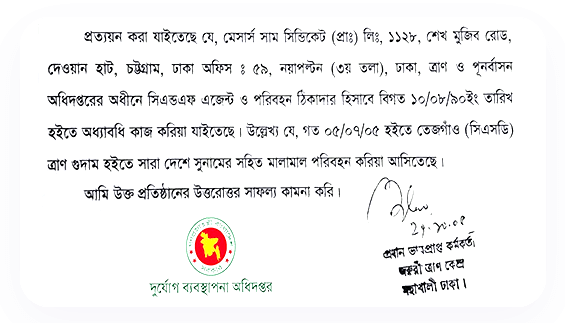 প্রত্যয়ন করা যাইতেছে যে, মেসার্স সাম সিন্ডিকেট (প্রাঃ) লিঃ, ১১২৮, শেখ মুজিব রোড,
দেওয়ান হাট, চট্টগ্রাম, ঢাকা অফিস ঃ ৫৯, নয়াপল্টন (৩য় তলা), ঢাকা, ত্রাণ ও পূনর্বাসন
অধিদপ্তরের অধীনে সিএন্ডএফ এজেন্ট ও পরিবহন ঠিকাদার হিসাবে বিগত ১০/০৮/৯০ইং তারিখ
হইতে অধ্যাবধি কাজ করিয়া যাইতেছে। উল্লেখ্য যে, গত ০৫/০৭/০৫ হইতে তেজগাঁও (সিএসডি)
ত্রাণ গুদাম হইতে সারা দেশে সুনামের সহিত মালামাল পরিবহন করিয়া আসিতেছে।
আমি উক্ত প্রতিষ্ঠানের উত্তরোত্তর সাফল্য কামনা করি।
দুর্যোগ ব্যবস্থাপনা অধিদপ্তর
প্রধান ভারপ্রাপ্ত কর্মকর্তা
জরুরী ত্রাণ কেন্দ্র
মহাখালী ঢাকা।